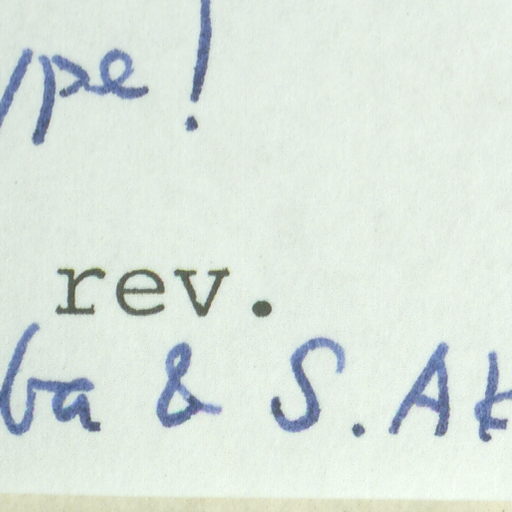 ype!
rev.
ba & S. Ak